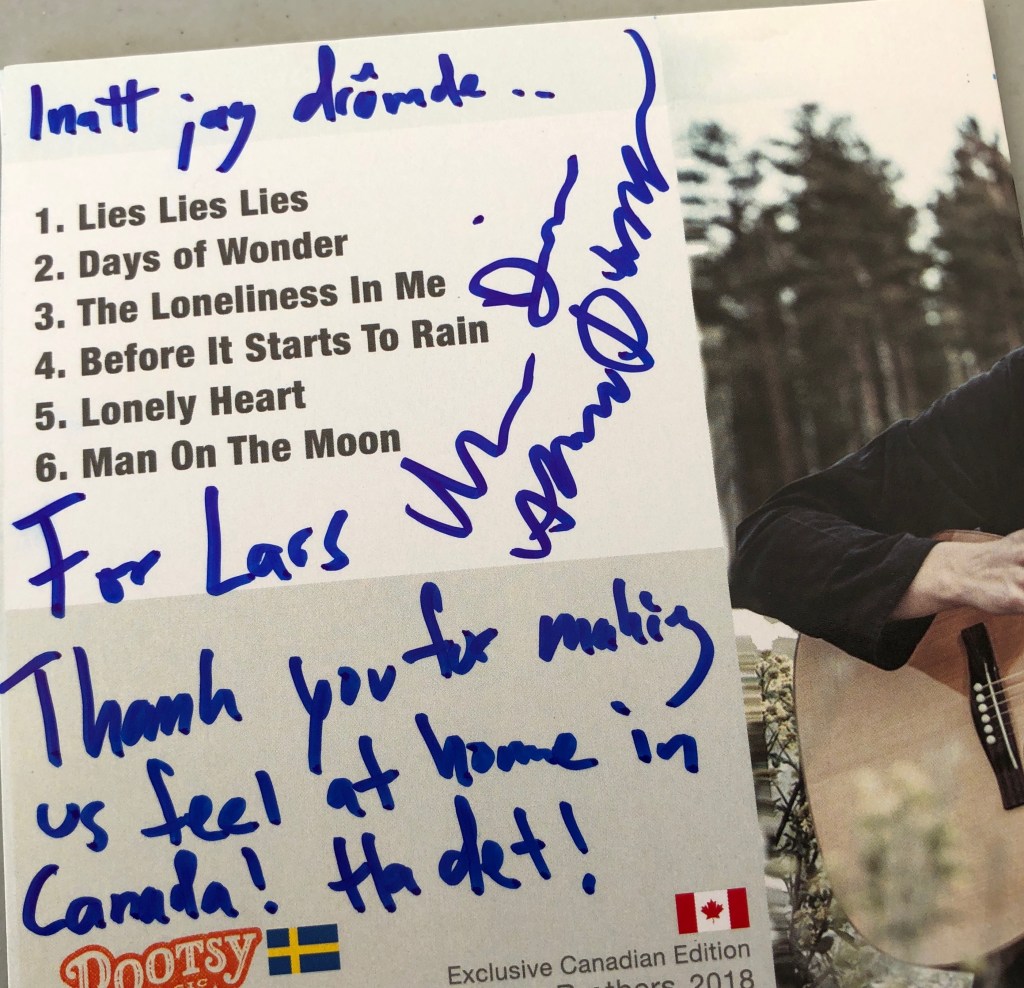 Inatt jag drömde..
1. Lies Lies Lies
2. Days of Wonder
3. The Loneliness In Me
4. Before It Starts To Rain
5. Lonely Heart
6. Man On The Moon
For Lars
Thank you for making
us feel at home in
Canada! Ha det!
ROOTSY
Exclusive Canadian Edition
2018